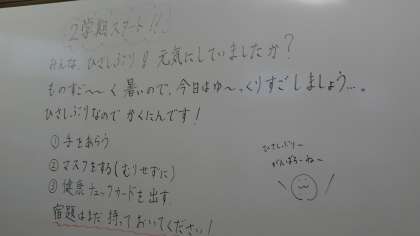 2学期スタート!!
みんな、ひさしぶり!! 元気にしていましたか?
ものすご〜〜く暑いので、今日はゆ〜っくりすごしましょう…。
ひさしぶりなのでかくにんです!
①手をあらう
②マスクをする(むりせずに)
③健康チェックカードを出す.
宿題はまだ持っておいてください!
ひさしぶりー
がんばろーねー